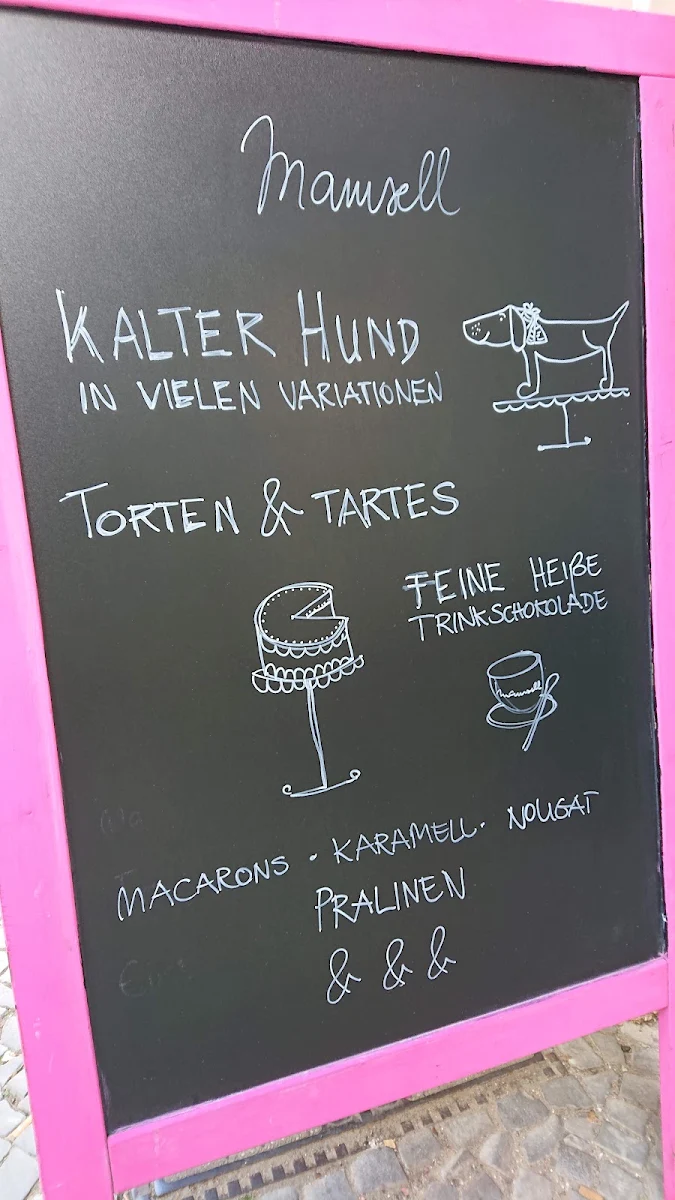 Mamsell
KALTER HUND
IN VIELEN VARIATIONEN
TORTEN & TARTES
FEINE HEIßE
TRINKSCHOKOLADE
mamsell
MACARONS · KARAMELL · NOUGAT
PRALINEN
& & &